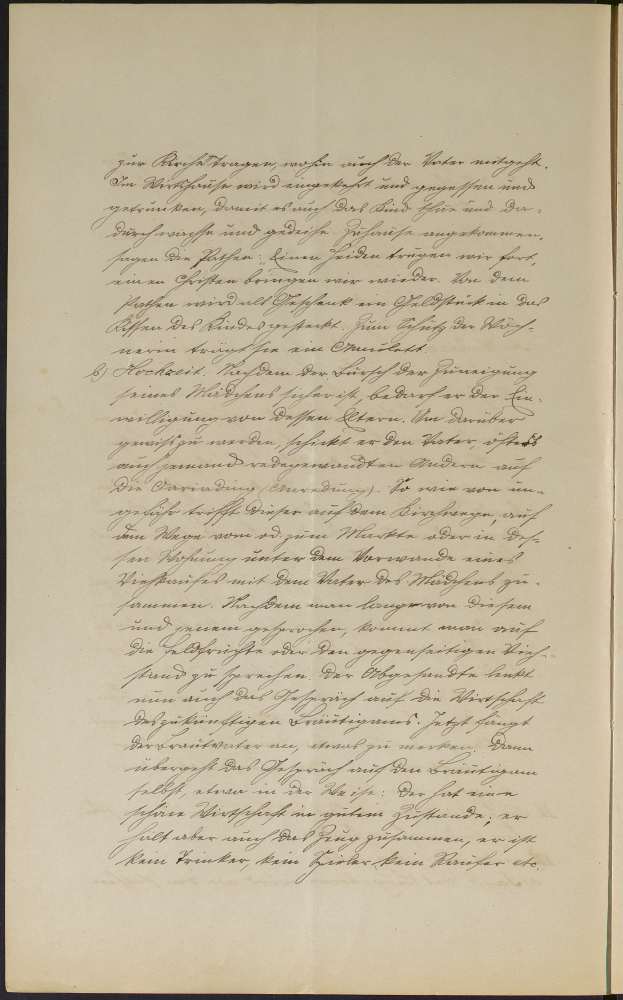 zur Kirche tragen, wohin auch der Vater mitgeht.
Im Wirtshause wird eingekehrt und gegessen und
getrunken, damit es auch das Kind thue und da-
durch wachse und gedeihe. Zuhause angekommen,
sagen die Pathen: Einen Heiden trugen wir fort,
einen Christen bringen wir wieder. Von dem
Pathen wird als Geschenk ein Geldstück in das
Kissen des Kindes gesteckt. Zum Schutz der Wöch-
nerin trägt sie ein Amulett.
b) Hochzeit. Nachdem der Bursch der Zuneigung
seines Mädchens sicher ist, bedarf er der Ein-
willigung von dessen Eltern. Um darüber
gewiß zu werden, schickt er den Vater, öfters
auch jemand redegewandten Andern auf
die (Anredung). So wie von un-
gefähr trifft dieser auf dem Kirchwege, auf
dem Wege vom od. zum Markte oder in des-
sen Wohnung unter dem Vorwande eines
Viehkaufes mit dem Vater des Mädchens zu-
sammen. Nachdem man lange von diesem
und jenem gesprochen, kommt man auf
die Feldfrüchte oder den gegenseitigen Vieh-
stand zu sprechen. Der Abgesandte lenkt
nun auch das Gespräch auf die Wirtschaft
des zukünftigen Bräutigams. Jetzt fängt
der Brautvater an, etwas zu merken. Dann
übergeht das Gespräch auf den Bräutigam
selbst, etwa in der Weise: Der hat eine
schöne Wirtschaft in gutem Zustande; er
hält aber auch das Zeug zusammen, er ist
kein Trinker, kein Spieler, kein Raufer etc.